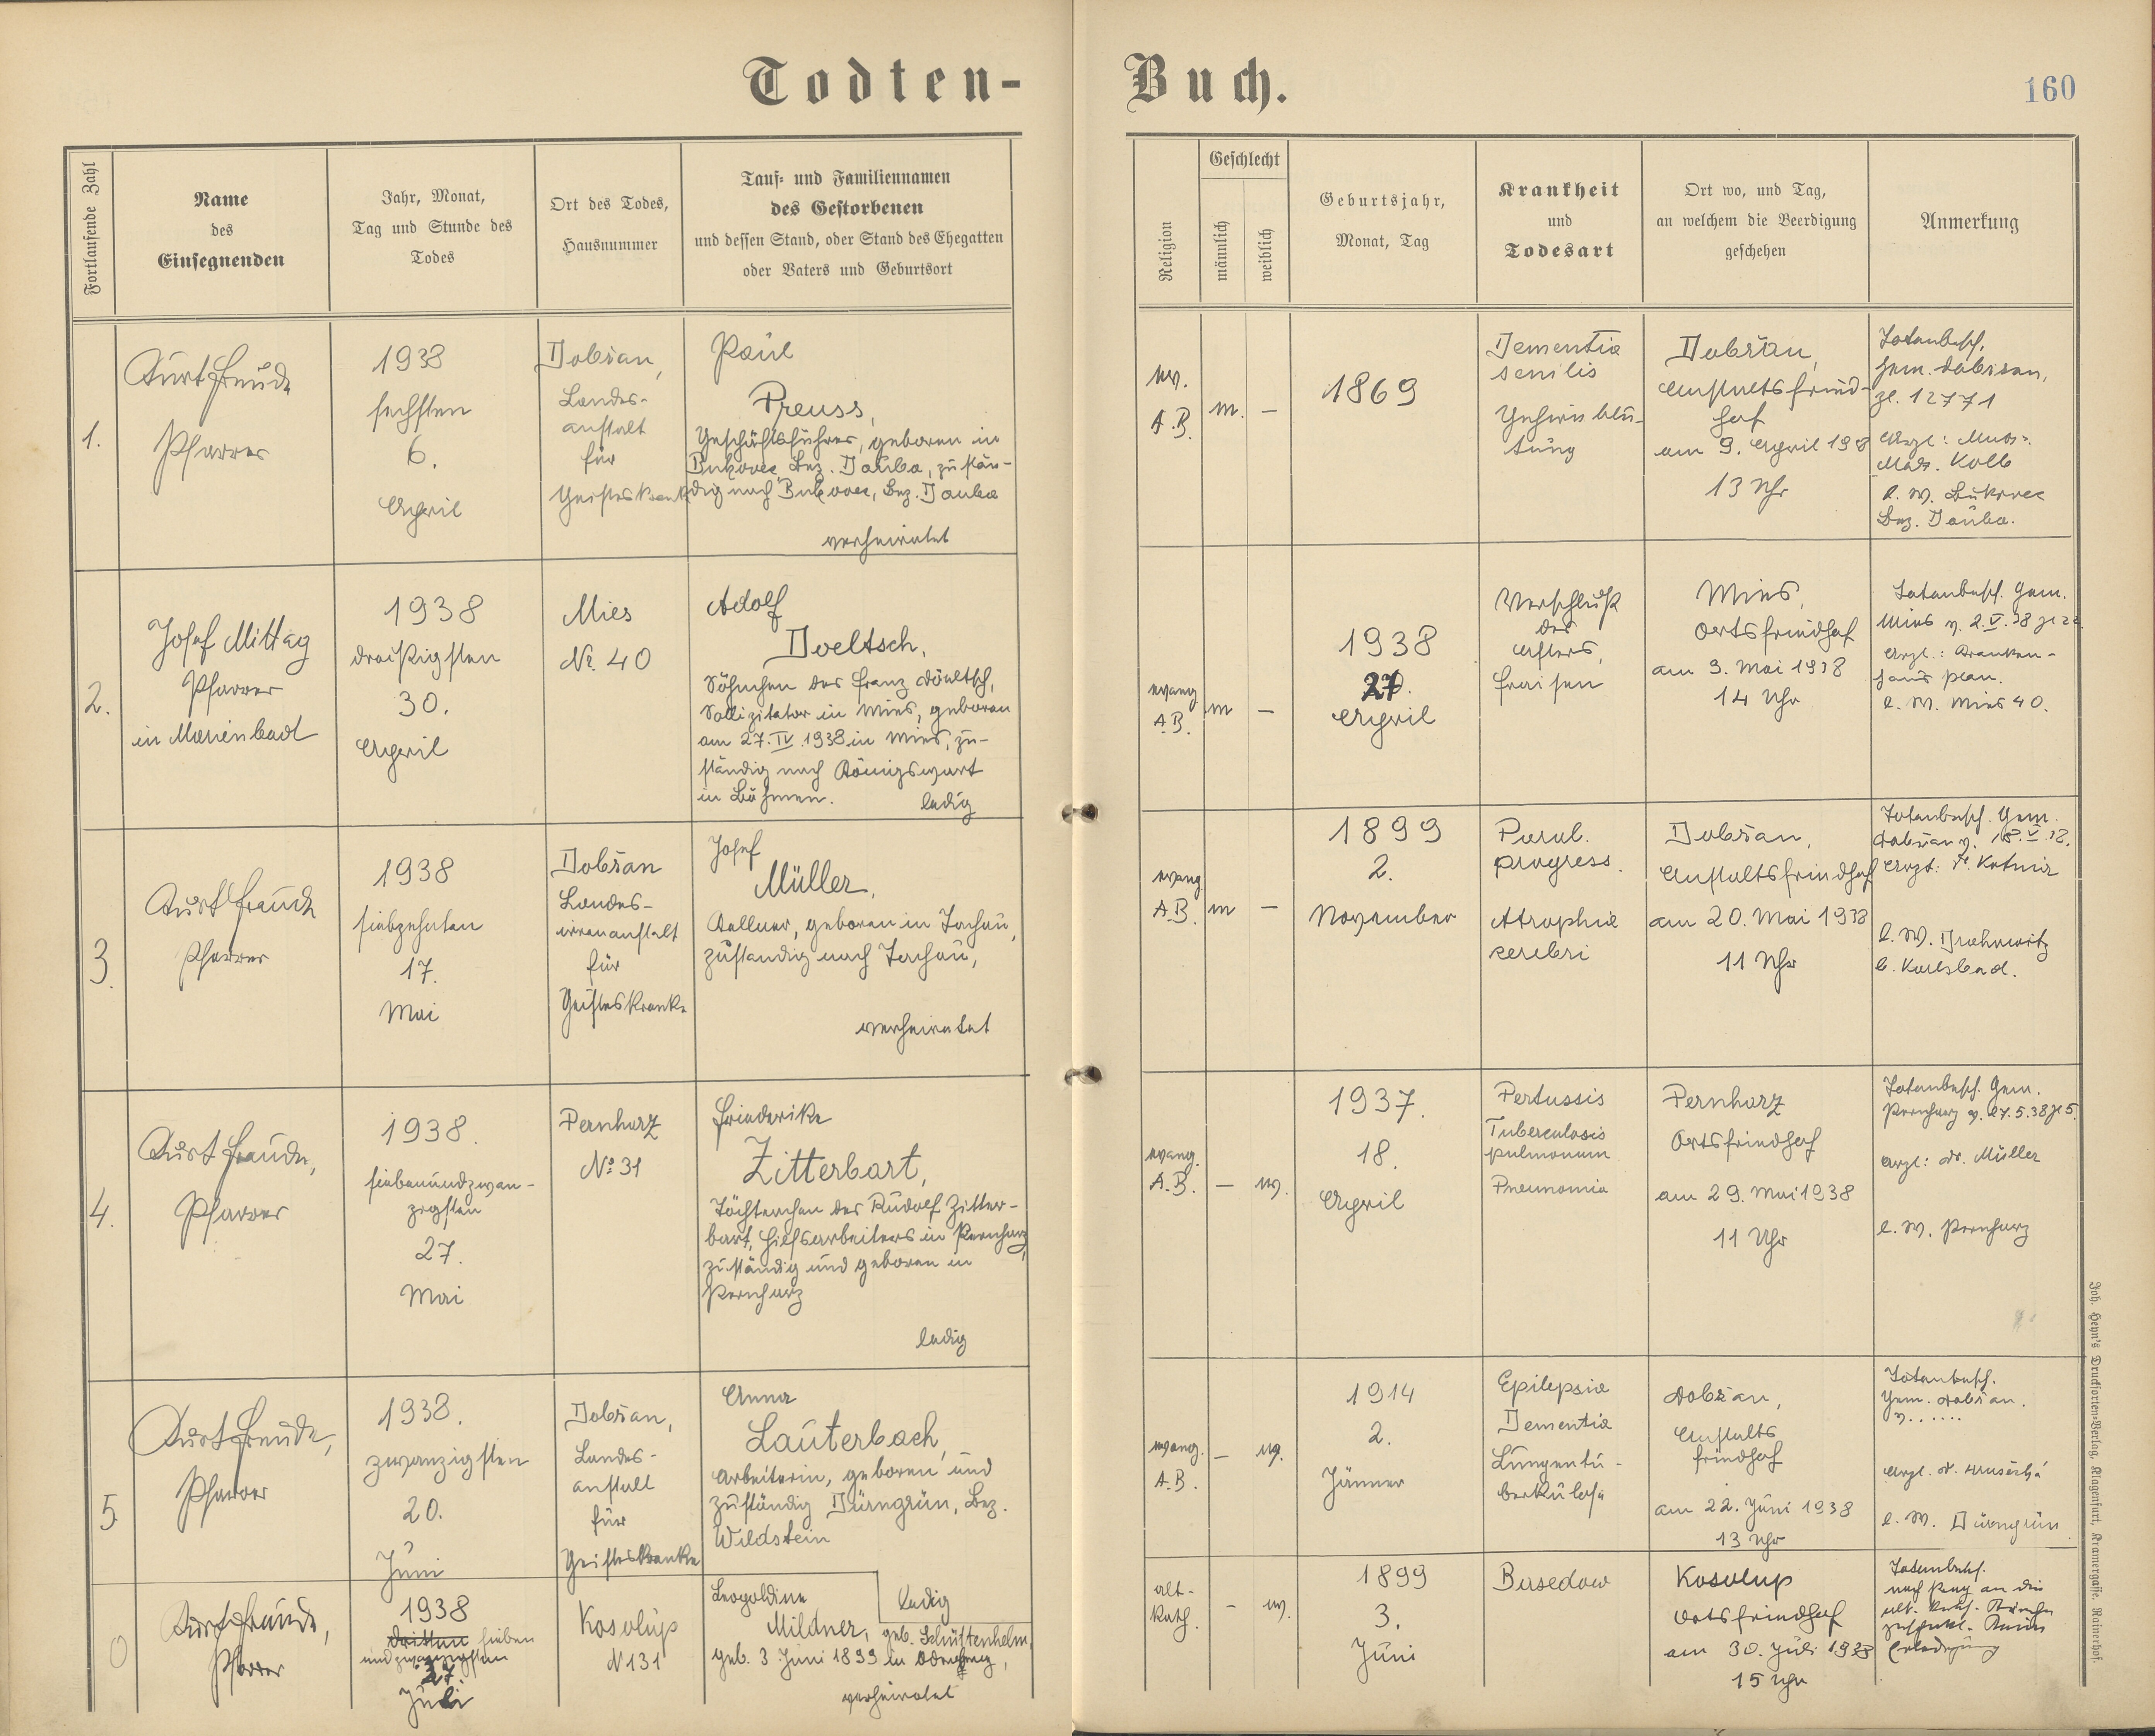 Todten-Buch.
160
Fortlaufende Zahl
Name
des
Einsegnenden
Jahr, Monat,
Tag und Stunde des
Todes
Ort des Todes,
Hausnummer
Tauf- und Familiennamen
des Gestorbenen
und dessen Stand, oder Stand des Ehegatten
oder Vaters und Geburtsort
Religion
Geschlecht
männlich
weiblich
Geburtsjahr,
Monat, Tag
Krankheit
und
Todesart
Ort wo, und Tag,
an welchem die Beerdigung
geschehen
Anmerkung
1.
Kurt Freude
Pfarrer
1938
sechsten
6.
April
Dobřan,
Landes-
anstalt
für
Geisteskranke
Paul
Preuss,
Geschäftsführer, geboren in
Bukovec, Bez. Dauba, zustän-
dig nach Bukovec, Bez. Dauba
verheiratet
ev.
A.B.
m.
—
1869
Dementia
senilis
Gehirnblu-
tung
Dobřan,
Anstaltsfried-
hof
am 9. April 1938
13 Uhr
Totenbesch.
Gem. Dobřan,
Zl. 12771
Arzt:
Kolb
l. W. Bukovec
Bez. Dauba.
2.
Josef Mittag
Pfarrer
in Marienbad
1938
dreißigsten
30.
April
Mies
Nr. 40
Adolf
Doeltsch,
Söhnchen des Franz Döeltsch,
Sollizitator in Mies, geboren
am 27. IV. 1938 in Mies, zu-
ständig nach Königswart
in Böhmen.
ledig
evang.
A.B.
m
—
1938
27.
April
Verschluß
des
Afters,
Fraisen
Mies,
Ortsfriedhof
am 3. Mai 1938
14 Uhr
Totenbesch. Gem.
Mies v. 2. V. 38
Arzt: Kranken-
haus Plan.
l. W. Mies 40.
3.
Kurt Freude
Pfarrer
1938
siebzehnten
17.
Mai
Dobřan
Landes-
irrenanstalt
für
Geisteskranke
Josef
Müller,
Kellner, geboren in Tachau,
zuständig nach Tachau,
verheiratet
evang.
A.B.
m
—
1899
2.
November
Paral.
progress.
Atrophia
cerebri
Dobřan,
Anstaltsfriedhof
am 20. Mai 1938
11 Uhr
Totenbesch. Gem.
Dobřan v. 18. V. 38.
Arzt:
l. W. Drahowitz
b. Karlsbad.
4.
Kurt Freude,
Pfarrer
1938.
siebenundzwan-
zigsten
27.
Mai
Pernharz
No. 31
Friederike
Zitterbart,
Töchterchen des Rudolf Zitter-
bart, Hilfsarbeiters in Pernharz,
zuständig und geboren in
Pernharz
ledig
evang.
A.B.
—
w.
1937.
18.
April
Pertussis
Tuberculosis
pulmonum
Pneumonia
Pernharz
Ortsfriedhof
am 29. Mai 1938
11 Uhr
Totenbesch. Gem.
Pernharz v. 27.5.38 Zl 5.
Arzt: Dr. Müller
l. W. Pernharz
5
Kurt Freude,
Pfarrer
1938.
zwanzigsten
20.
Juni
Dobřan,
Landes-
anstalt
für
Geisteskranke
Anna
Lauterbach,
Arbeiterin, geboren und
zuständig Dürngrün, Bez.
Wildstein
ledig
evang.
A.B.
—
w.
1914
2.
Jänner
Epilepsia
Dementia
Lungentu-
berkulose
Dobřan,
Anstalts
friedhof
am 22. Juni 1938
13 Uhr
Totenbesch.
Gem. Dobřan.
v. .....
Arzt. Dr.
l. W. Dürngrün
0
Kurt Freude,
Pfarrer
1938
dritten sieben
undzwanzigsten
27
Juli
Kosolup
N 131
Leopoldine
Mildner, geb. Schüttenhelm,
geb. 3 Juni 1899 in
verheiratet
alt-
kath.
—
w.
1899
3.
Juni
Basedow
Kosolup
Ortsfriedhof
am 30. Juli 1938
15 Uhr
Totenbesch.
nach Prag an die
alt. kath. Kirche
Erledigung
Joh. Heyn's Drucksorten-Verlag, Klagenfurt, Kramergasse. Rainerhof.